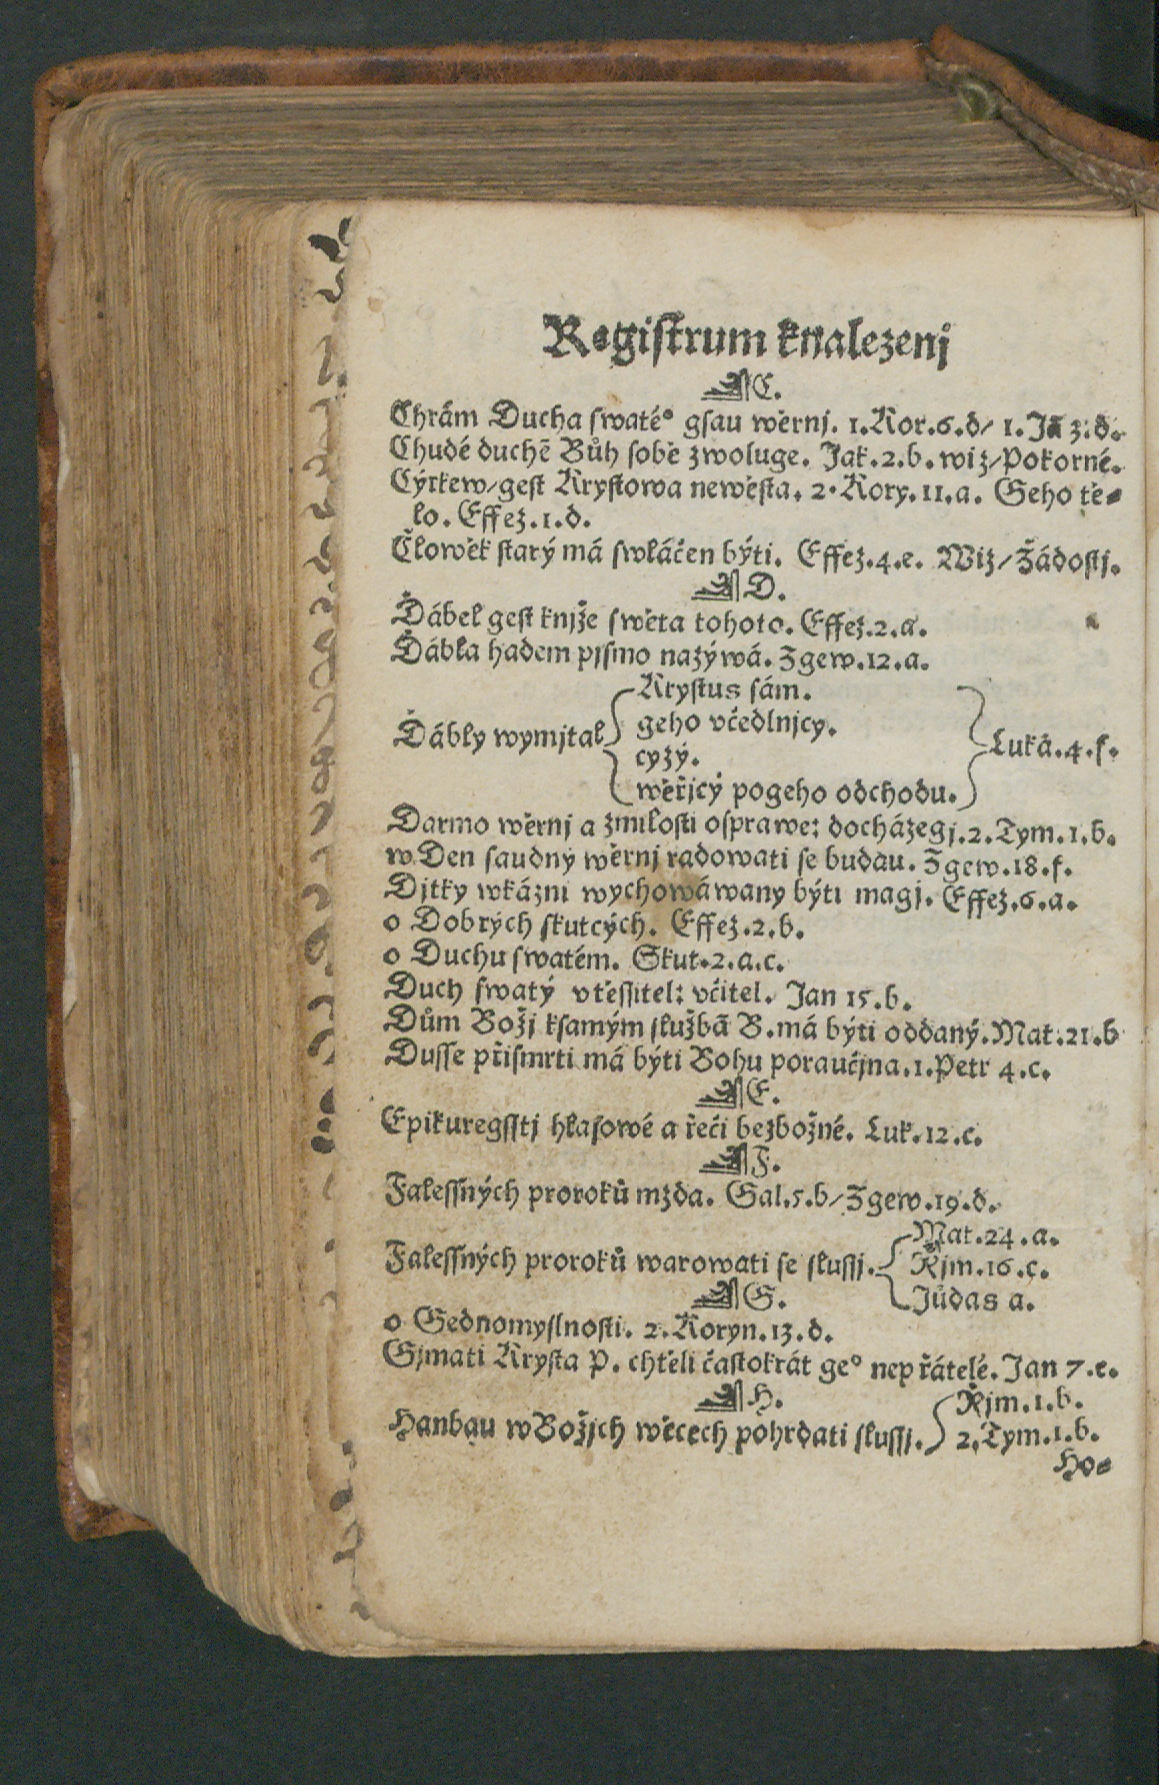 Registrum knalezenj
C.
Chrám Ducha swaté° gsau wěrnj. 1. Kor. 6. d/ 1. Jā 3. d.
Chudé duchē Bůh sobě zwoluge. Jak. 2. b. wiz/ Pokorné.
Cýrkew/ gest Krystowa newěsta. 2. Kory. 11. a. Geho tě=
lo. Effez. 1. d.
Čłowěk starý má swłáčen býti. Effez. 4. e. Wiz/ Žádostj.
D.
Ďábel gest knjže swěta tohoto. Effez. 2. a.
Ďábła hadem pjsmo nazýwá. Zgew. 12. a.
Krystus sám.
geho včedlnjcy.
Ďábły wymjtal cyzý. Lukā. 4. f.
wěřjcý pogeho odchodu.
Darmo wěrnj a zmiłosti osprawe: docházegj. 2. Tym. 1. b.
w Den saudný wěrnj radowati se budau. Zgew. 18. f.
Djtky wkázni wychowáwany býti magj. Effez. 6. a.
o Dobrých skutcých. Effez. 2. b.
o Duchu swatém. Skut. 2. a. c.
Duch swatý vtěssitel: včitel. Jan 15. b.
Dům Božj ksamým słužbā B. má býti oddaný. Mat. 21. b
Dusse přismrti má býti Bohu poraučjna. 1. Petr 4. c.
E.
Epikuregsstj hłasowé a řeči bezbožné. Luk. 12. c.
F.
Falessných proroků mzda. Gal. 5. b/ Zgew. 19. d.
Mat. 24. a.
Falessných proroků warowati se słussj. Řjm. 16. c.
Júdas a.
G.
o Gednomyslnosti. 2. Koryn. 13. d.
Gjmati Krysta P. chtěli častokrát ge° nepřátelé. Jan 7. e.
H.
Řjm. 1. b.
Hanbau w Božjch wěcech pohrdati słussj. 2. Tym. 1. b.
Ho=